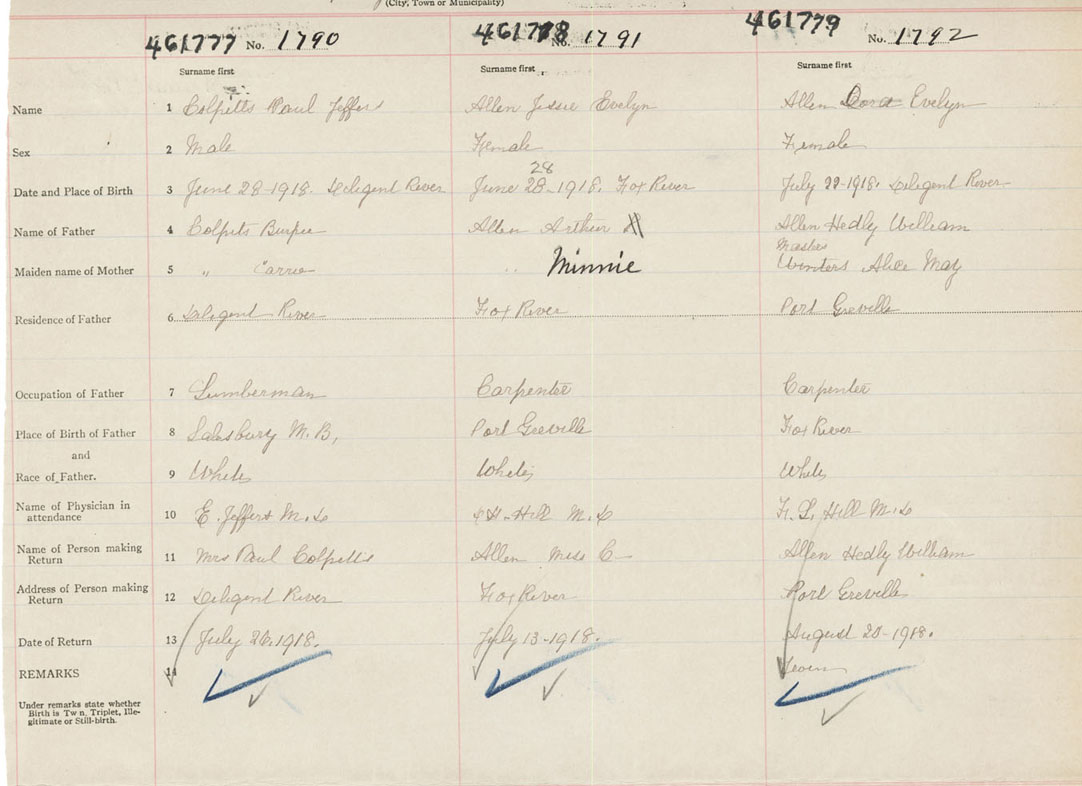 (City, Town or Municipality)
461777 No. 1790 461778 No. 1791 461779 No. 1792
Surname first Surname first Surname first
Name 1 Colpitts Paul Jeffers Allen Jessie Evelyn Allen Cora Evelyn
Sex 2 Male Female Female
28
Date and Place of Birth 3 June 28-1918. Deligent River June 28-1918. Fox River July 22-1918. Deligent River
Name of Father 4 Colpits Burpee Allen Arthur Allen Hedly William
Maiden name of Mother 5 " Carrie " Minnie Winters Alice May
Residence of Father 6 Deligent River Fox River Port Greville
Occupation of Father 7 Lumberman Carpenter Carpenter
Place of Birth of Father 8 Salesbury M.B, Port Greville Fox River
and
Race of Father. 9 White White White
Name of Physician in
attendance 10 E. Jeffers M.D Hill M.D Hill M.D
Name of Person making
Return 11 Mrs Paul Colpitts Allen Miss C Allen Hedly William
Address of Person making
Return 12 Deligent River Fox River Port Greville
Date of Return 13 July 26.1918. July 13-1918. August 20-1918.
REMARKS 14
Under remarks state whether
Birth is Tw n, Triplet, Ille-
gitimate or Still-birth.